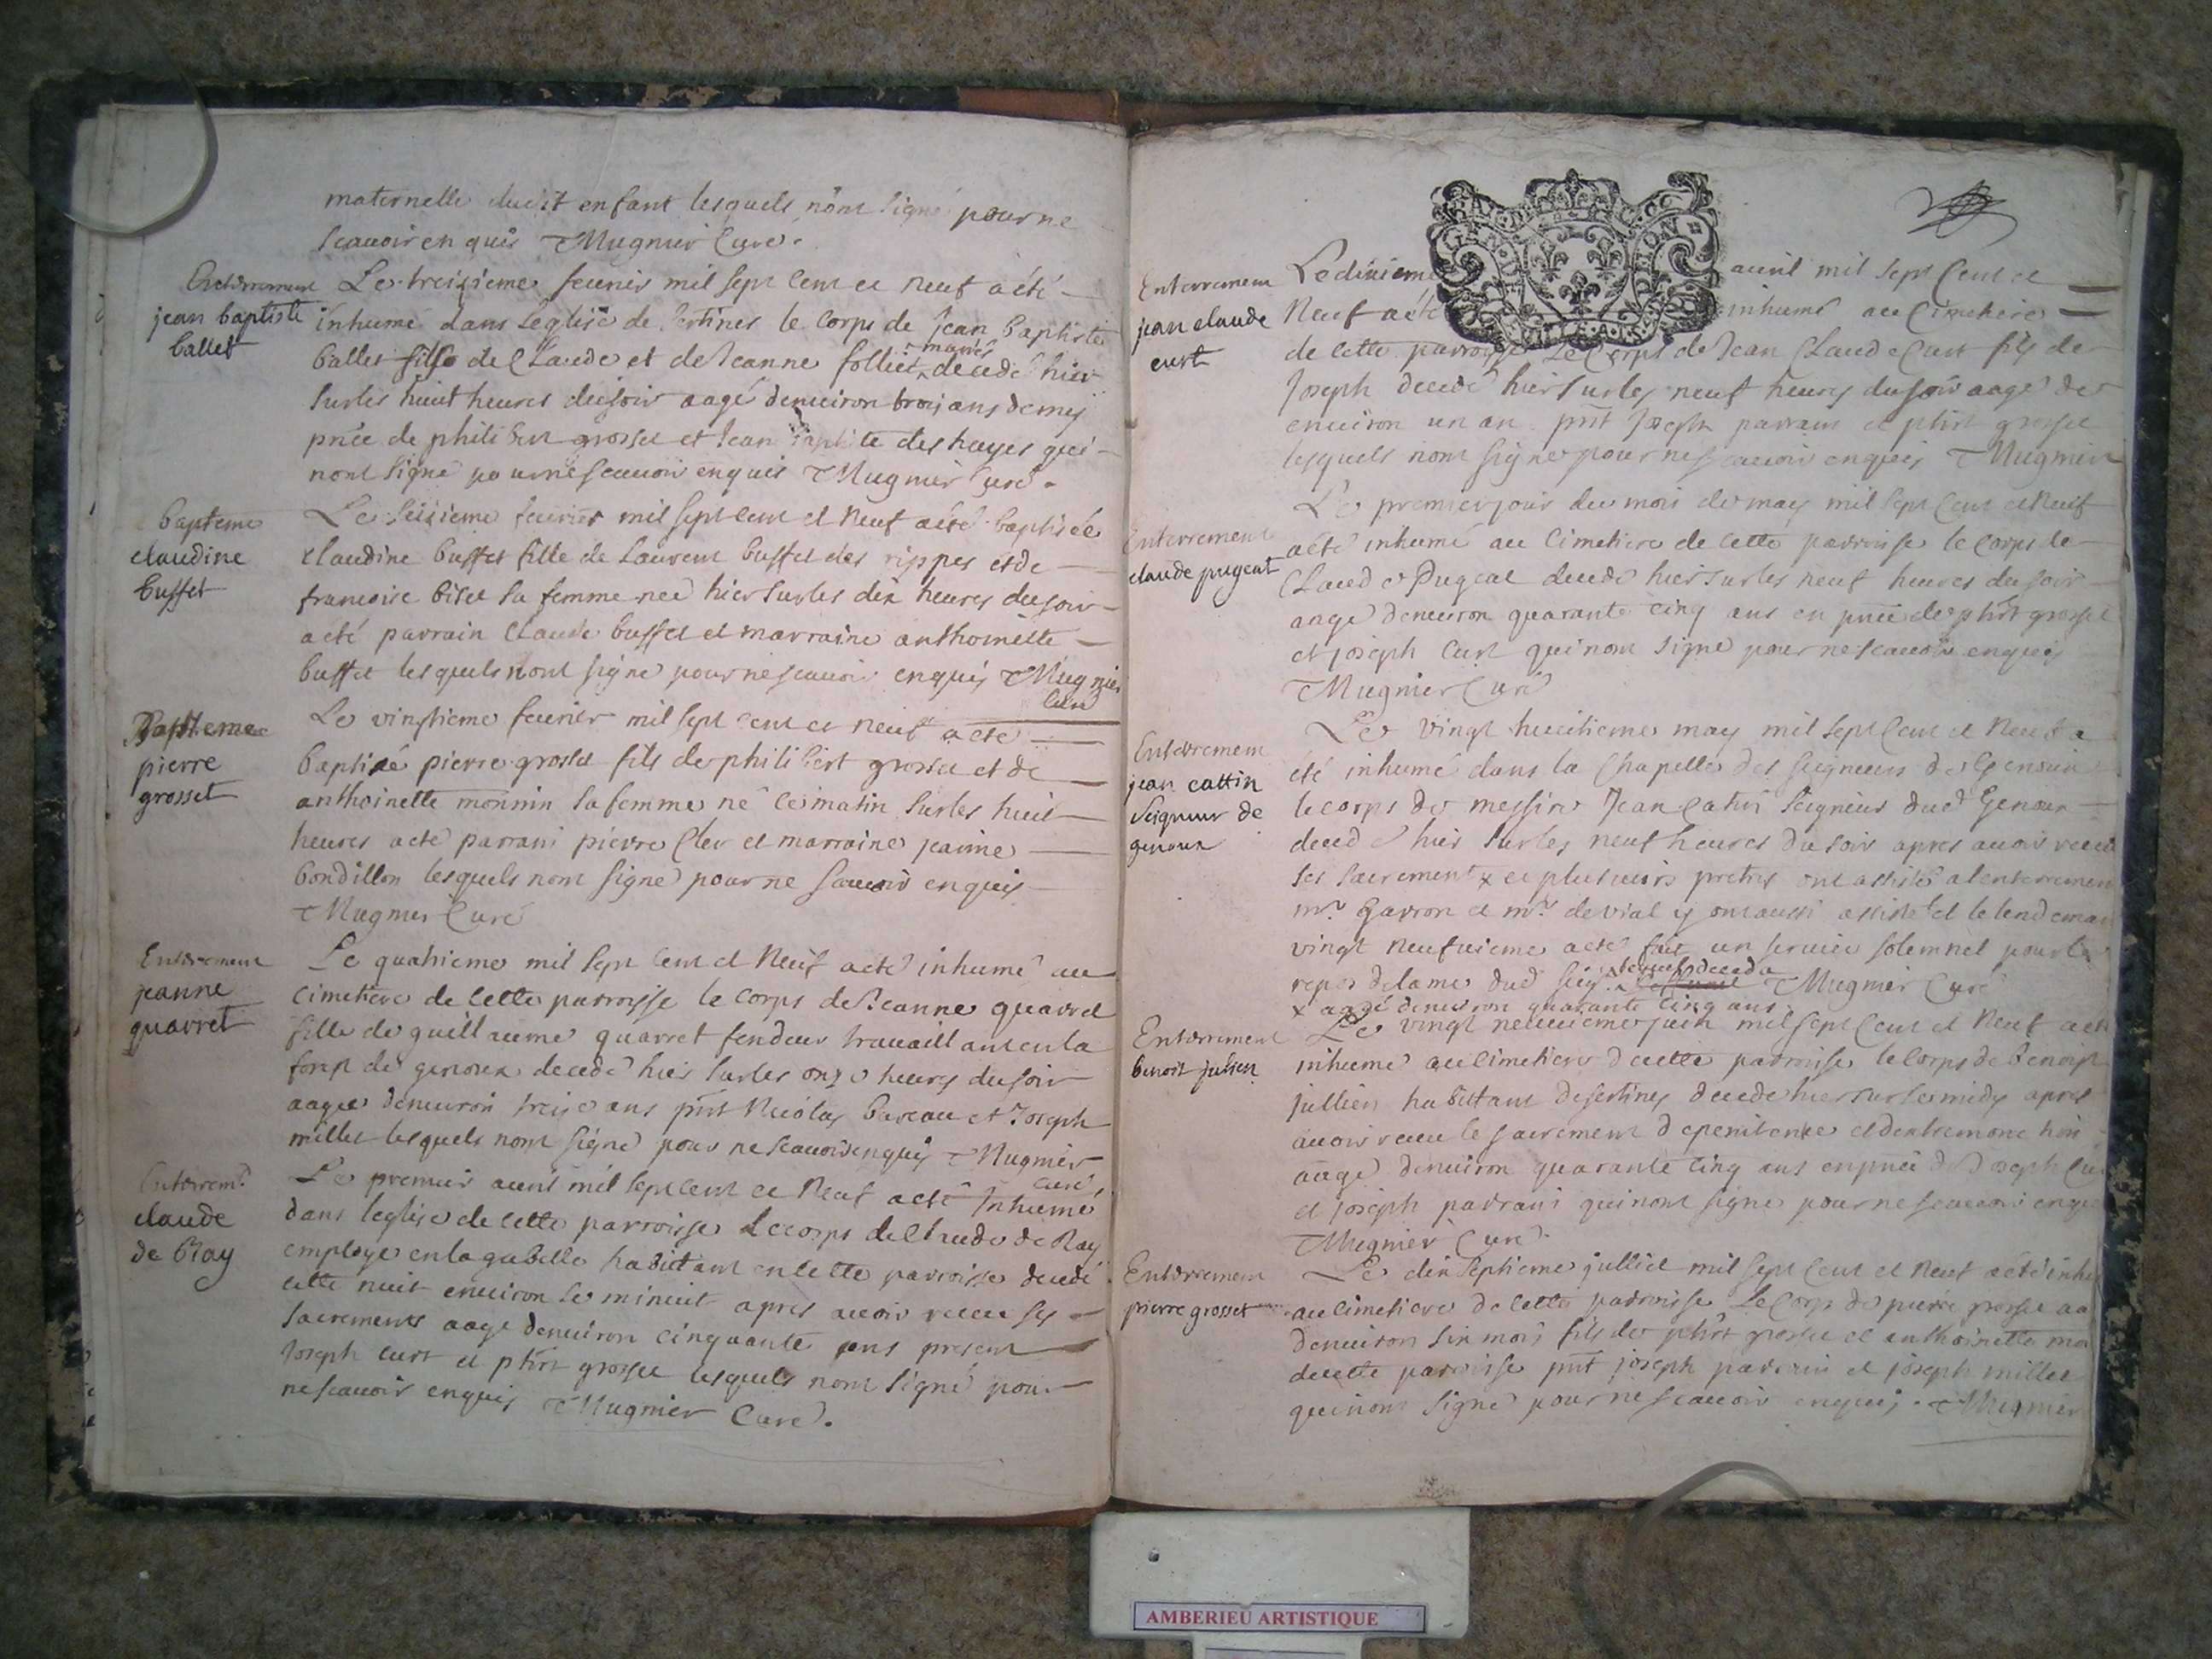 maternelle dudit enfant lesquels nont signé pour ne
scauoir enquis Mugnier Curé.
Enterrement
jean baptiste
ballet
Le treizieme feurier mil sept cent et neuf a été
inhumé dans leglise de Sertines le Corps de jean baptiste
ballet fils de Claude et de Jeanne follier mariés decedé hier
sur les huit heures du soir aagé denuiron trois ans demy
pnce de philibert grosset et Jean baptiste des hayes qui
nont signé pour ne scauoir enquis Mugnier Curé.
bapteme
claudine
buffet
Le seizieme feurier mil sept cent et neuf a été baptisée
claudine buffet fille de Laurent buffet des rippes et de
francoise biset sa femme née hier sur les dix heures du soir
a eté parrain Claude buffet et marraine anthoinette
buffet lesquels nont signé pour ne scauoir enquis Mugnier
Curé
Bapteme
pierre
grosset
Le vingtieme feurier mil sept cent et neuf a eté
baptizé pierre grosset fils de philibert grosset et de
anthoinette monnin sa femme né ce matin sur les huit
heures a eté parrain pierre Cler et marraine jeanne
bondillon lesquels nont signé pour ne scauoir enquis
Mugnier Curé
Enterrement
jeanne
quarret
Le quatrieme mil sept cent et neuf a eté inhumé au
cimetiere de cette parroisse le corps de Jeanne quarret
fille de guillaume quarret fendeur trauaillant en la
forest de genoux decedé hier sur les onze heures du soir
aagée denuiron treize ans pnt Nicolas bareau et Joseph
millet lesquels nont signé pour ne scauoir enquis Mugnier
Curé
Enterremt
claude
de Ray
Le premier auril mil sept cent et neuf a eté Inhumé
dans leglise de cette parroisse Le corps de Claude de Ray
employé en la gabelle habitant en cette parroisse decedé
cette nuit enuiron le minuit apres auoir receu ses
sacrements aagé denuiron cinquante ans present
Joseph curt et phirt grosset lesquels nont signé pour
ne scauoir enquis Mugnier Curé.
Enterrement
jean claude
curt
Le dixieme auril mil sept cent et
neuf a eté inhumé au Cimetiere
de cette parroisse Le Corps de Jean Claude Curt fils de
Joseph decedé hier sur les neuf heures du soir aagé de
enuiron un an pnt Joseph parrain et phirt grosset
lesquels nont signé pour ne scauoir enquis Mugnier
Enterrement
claude pugeat
Le premier jour du mois de may mil sept cent et neuf
a eté inhumé au Cimetiere de cette parroisse le Corps de
Claude Pugeat decedé hier sur les neuf heures du soir
aagé denuiron quarante cinq ans en pnce de phirt grosset
et joseph Curt qui nont signé pour ne scauoir enquis
Mugnier Curé
Enterrement
jean cattin
Seigneur de
genoux
Le vingt huitieme may mil sept cent et neuf a
été inhumé dans la Chapelle des seigneurs de Genoux
le corps de messire Jean Catin seigneur dud Genoux
decedé hier sur les neuf heures du soir apres auoir receu
ses sacrement x et plusieurs pretres ont assisté a lenterrement
mr Garron et mr de vial y ont aussi assisté et le lendemain
vingt neufuieme a eté fait un seruice solemnel pour le
repos de lame dud seigr Mugnier Curé
x aagé denuiron quarante cinq ans
Enterrement
benoit julien
Le vingt neuuieme juin mil sept cent et neuf a eté
inhumé au Cimetiere de cette parroisse le Corps de benoist
jullien habitant de sertines decedé hier sur le midy apres
auoir receu le sacrement de penitence et dextremonction
aagé denuiron quarante cinq ans en pnce de Joseph
et joseph parrain qui nont signé pour ne scauoir enquis
Mugnier Curé.
Enterrement
pierre grosset
Le dix septieme julliet mil sept cent et neuf a eté inhu
au Cimetiere de cette parroisse Le Corps de pierre grosset aa
denuiron six mois fils de phirt grosset et anthoinette mo
de cette parroisse pnt joseph parrain et joseph millet
qui nont signé pour ne scauoir enquis. Mugnier
AMBERIEU ARTISTIQUE